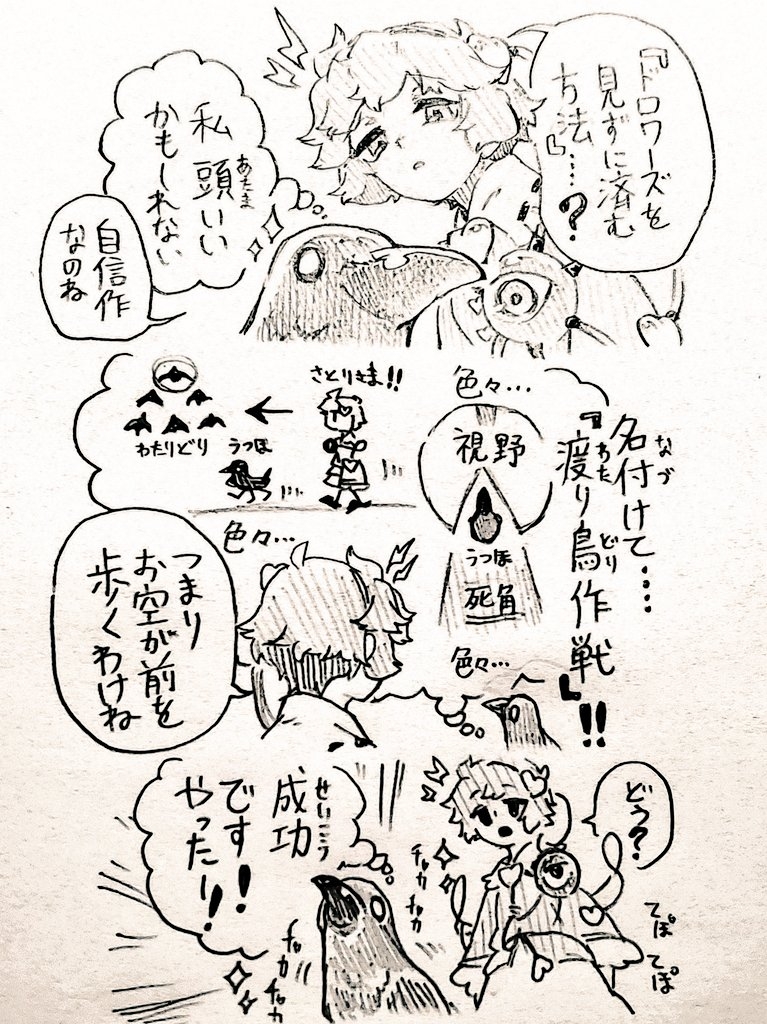 『ドロワーズを
見ずに済む
方法』……?
私 頭いい
あたま
かもしれない
自信作
なのね
名付けて……
なづ
『渡り鳥作戦』!!
わた どり
色々…
視野
うつほ
死角
色々…
さとりさま!!
うつほ
わたりどり
色々…
つまり
お空が前を
歩くわけね
どう?
てぽ
てぽ
成功
せいこう
です!
やったー!
チャカ
チャカ
チャカ
チャカ